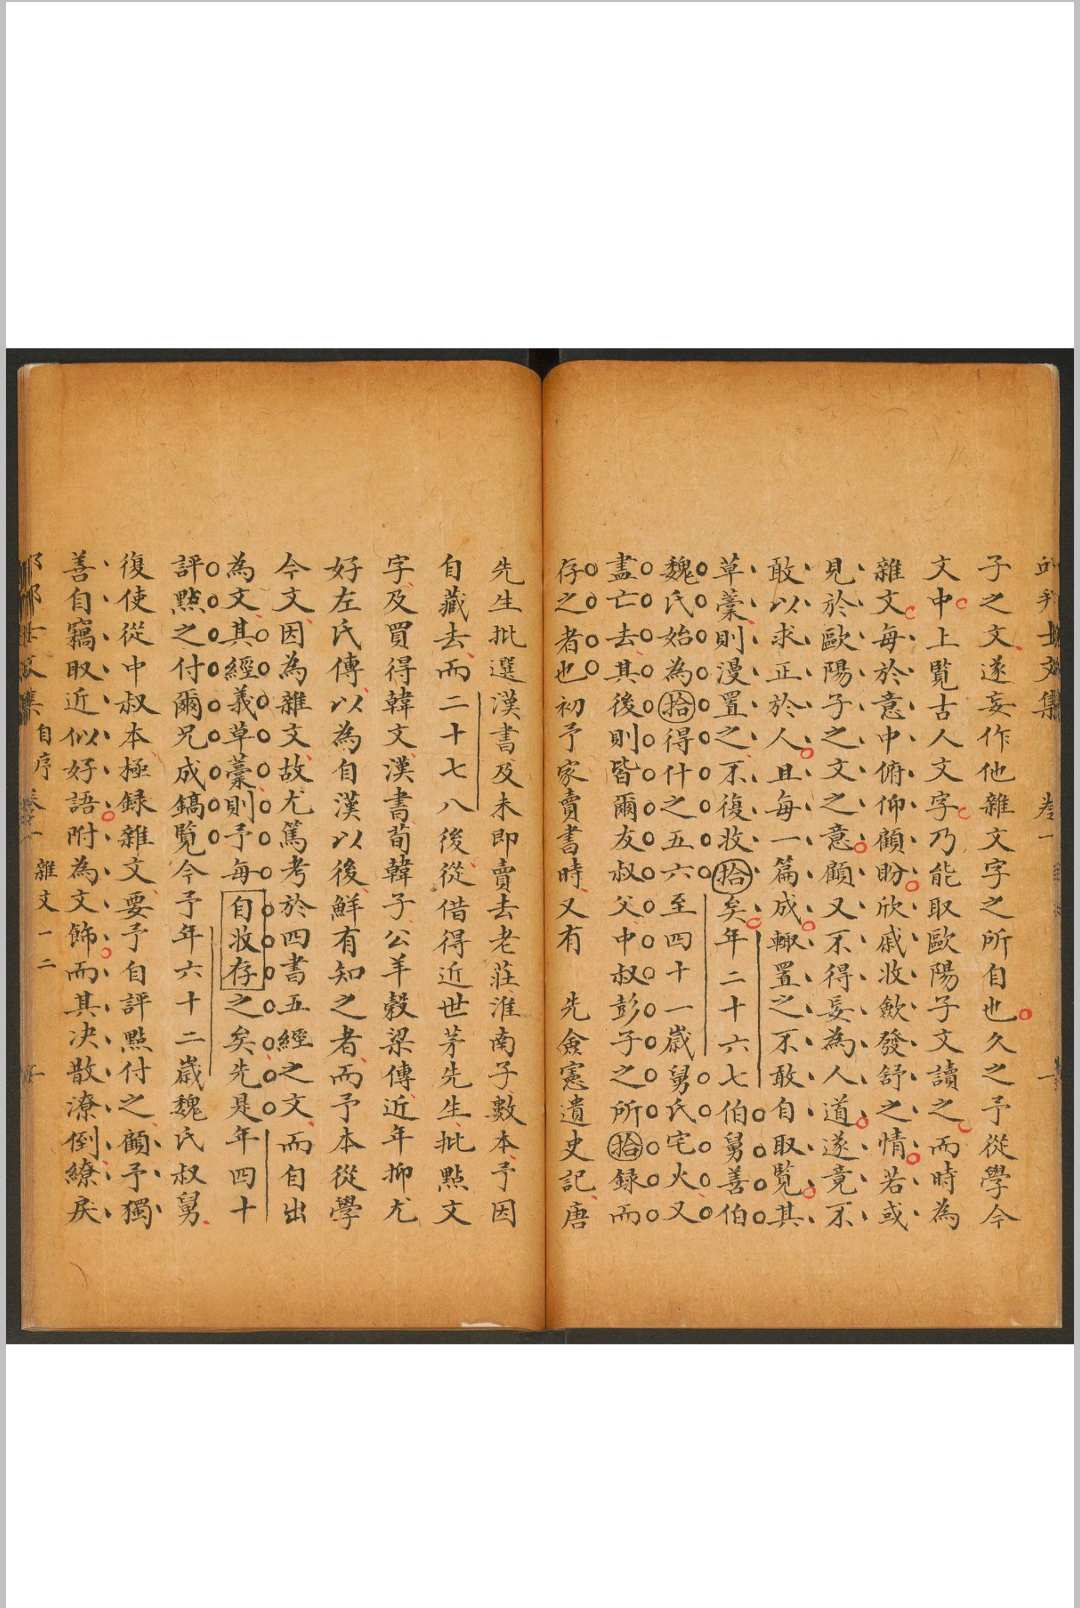 子之文遂妄作他雜文字之所自也久之予從學今
文中上覽古人文字乃能取歐陽子文讀之而時為
雜文每於意中俯仰顧盼欣戚收歛發舒之情若或
見於歐陽子之文之意顧又不得妄為人道遂竟不
敢以求正於人且每一篇成輙置之不敢自取覽其
草藁則漫置之不復收拾矣年二十六七伯舅善伯
魏氏始為拾得什之五六至四十一歲舅氏宅火又
盡亡去其後則皆爾友叔父中叔彭子之所拾録而
存之者也初予家賣書時又有 先僉憲遺史記唐
先生批選漢書及未即賣去老莊淮南子數本予因
自藏去而二十七八後從借得近世茅先生批點文
字及買得韓文漢書荀韓子公羊榖梁傳近年抑尤
好左氏傳以為自漢以後鮮有知之者而予本從學
今文因為雜文故尤篤考於四書五經之文而自出
為文其經義草藁則予每自收存之矣先是年四十
評點之付爾兄成鎬覽今予年六十二歲魏氏叔舅
復使從中叔本極録雜文要予自評點付之顧予獨
善自竊取近似好語附為文飾而其决散潦倒繚戾
自序 雜文一 二